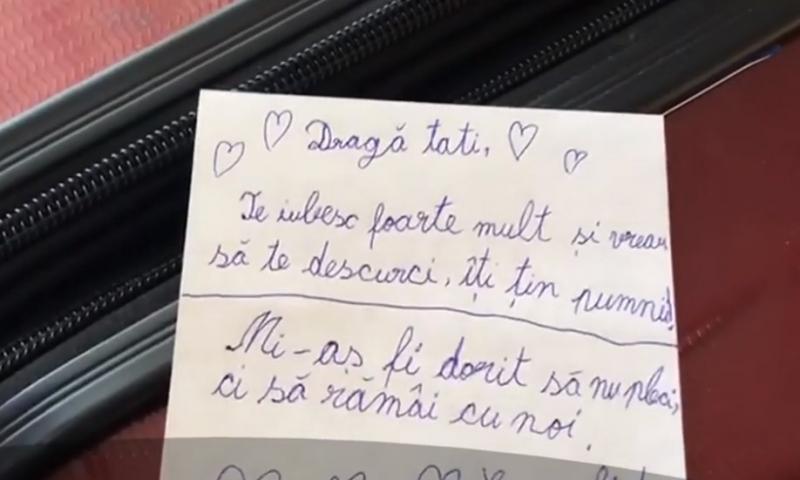 Dragă tati,
Te iubesc foarte mult și vreau
să te descurci, îți țin pumnii
Mi-aș fi dorit să nu pleci,
ci să rămâi cu noi.